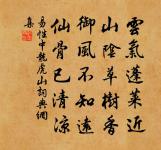 雲氣蓬萊近
山陰草樹香
御風不知遠
仙骨已清涼
易性中龍虎山詞典網
集